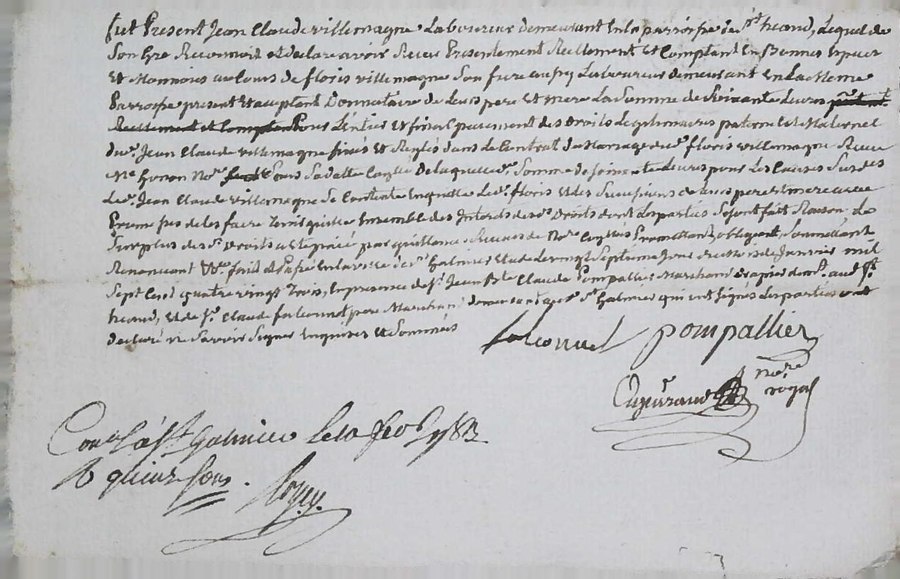 fut Present Jean Claude villemagne Laboureur demeurant En la parroisse de st heand, Lequel de
Son Gre Reconnoit et declare avoir Receu Presentement Reellement et Comptant En Bonnes Especes
Et Monnoies au Cours de floris villemagne Son frere aussy Laboureur demeurant En La Meme
Parroisse present et acceptant Donnataire de Leurs pere et mere La Somme de Soixante Livres
Reellement et Comptant Pour L'entier Et final paiement des Droits Legitimaires paternel et Maternel
du d. Jean Claude villemagne fixés et Reglés dans le Contrat de Mariage du d. floris villemagne Receu
Me Nore Sa datte De laquelle d. Somme de soixante Livres pour Les Causes Susdes
Le d. Jean Claude villemagne Se Contente En quitte Le d. floris et des Leurs pere et mere avec
Promesses de les faire Tenir quitte Ensemble des Interets des ds Droits dont Les parties Se sont fait Raison, Le
Surplus des ds Droits a été paié par quittance Receue de Nore Promettant, obligeant, Soumettant
Renonceant &c. fait et Passé En la ville de st Galmier Etude Le vingt Septieme Jour du Mois de Janvier mil
Sept Cent quatre vingt Trois, En presence de sr Jean Claude Pompallier Marchand Drapier du d. st
heand, Et de sr Claude falconnet pere Marchand demeurant au d. st Galmier qui ont Signés Les parties ont
declaré ne Savoir Signer Enquises Et Sommées
falconnet pompallier
nore
royal
Conlé à st Galmier le 10 fevr 1783
R quinze sous.